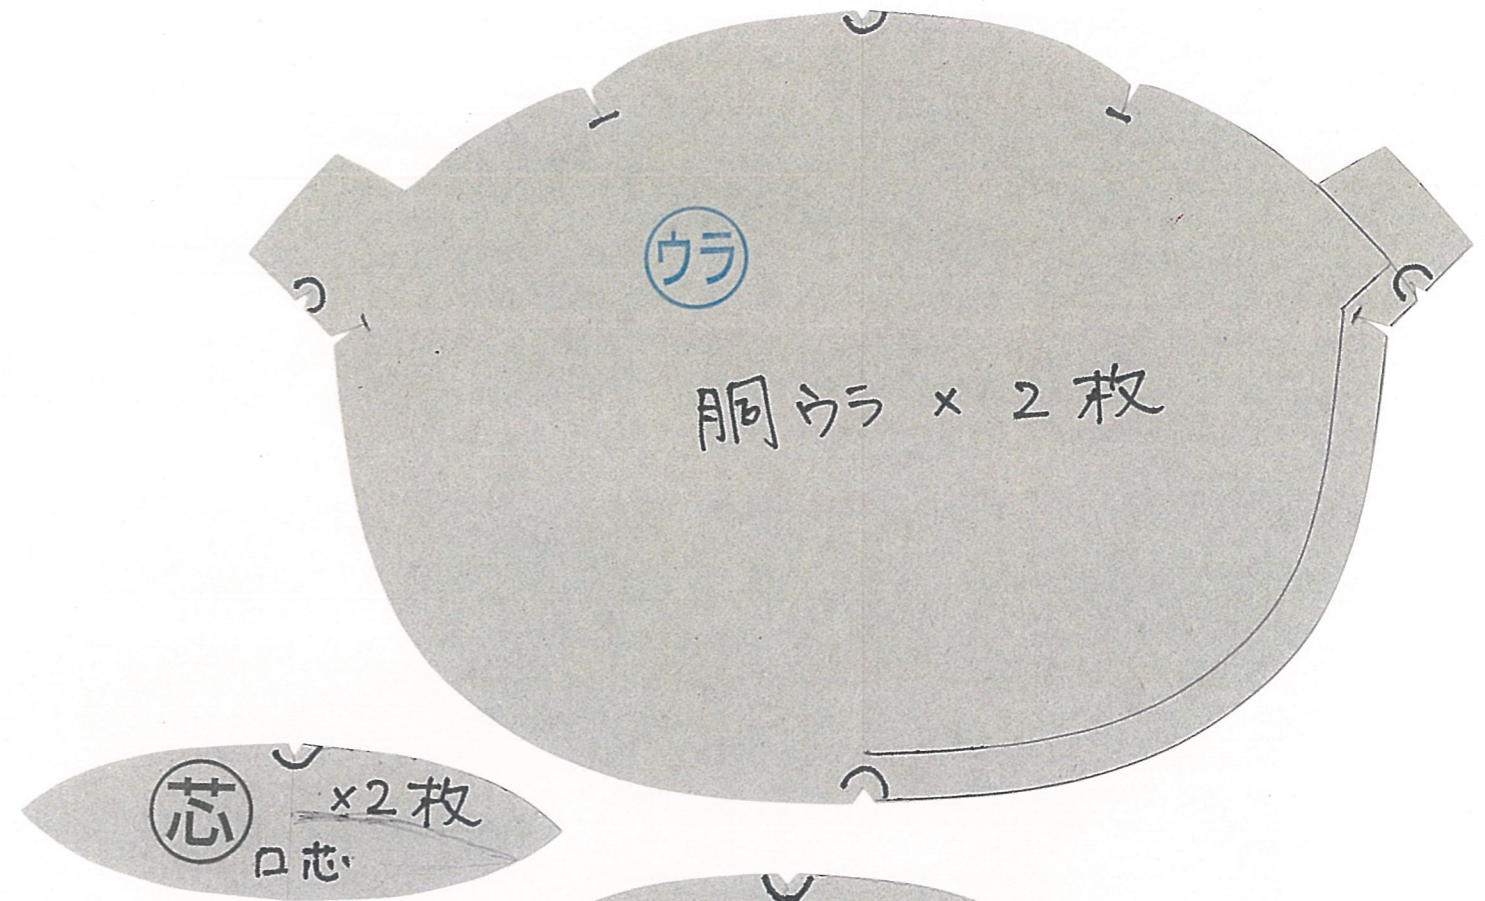 ウラ
胴ウラ × 2枚
芯 ×2枚
口芯